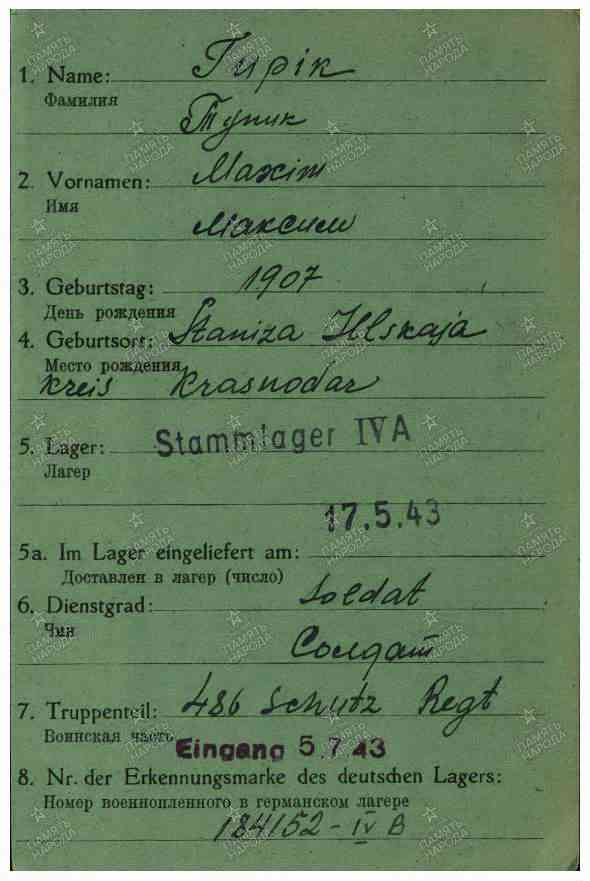 1. Name: Гирiк
Фамилия
Тупик
2. Vornamen: Maxim
Имя
Максим
3. Geburtstag: 1907
День рождения
4. Geburtsort: Staniza Ilskaja
Место рождения
Kreis Krasnodar
5. Lager: Stammlager IV A
Лагер
17.5.43
5a. Im Lager eingeliefert am:
Доставлен в лагер (число)
6. Dienstgrad: Soldat
Чин
Солдат
7. Truppenteil: 486 Schütz Regt
Воинская часть
Eingang 5.7.43
8. Nr. der Erkennungsmarke des deutschen Lagers:
Номер военнопленного в германском лагере
184152 - IV B
ПАМЯТЬ НАРОДА